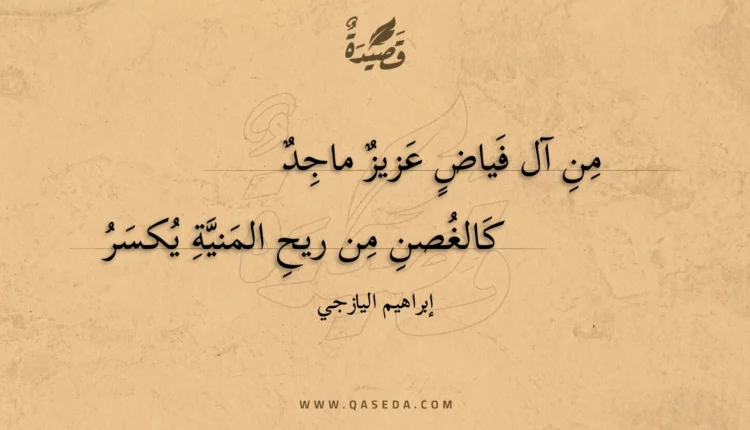 قَصِيدَةٌ
مِنِ آل فَياضٍ عَزيزٌ ماجِدٌ
كَالغُصنِ مِن ريحِ المَنيَّةِ يُكسَرُ
إبراهيم اليازجي
WWW.QASEDA.COM